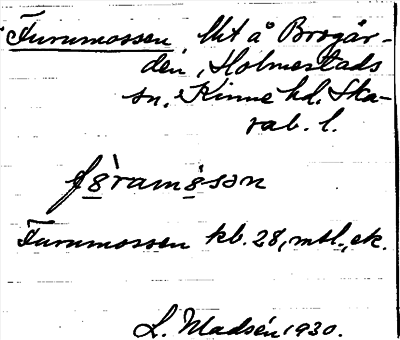 Furumossen, lht å Brogår-
den, Holmestads
sn. Kinne hd. Ska-
rab. l.
fɞ̀ramɞ̀sən
Furumossen kb. 28, mtl., ek.
L. Madsén 1930.